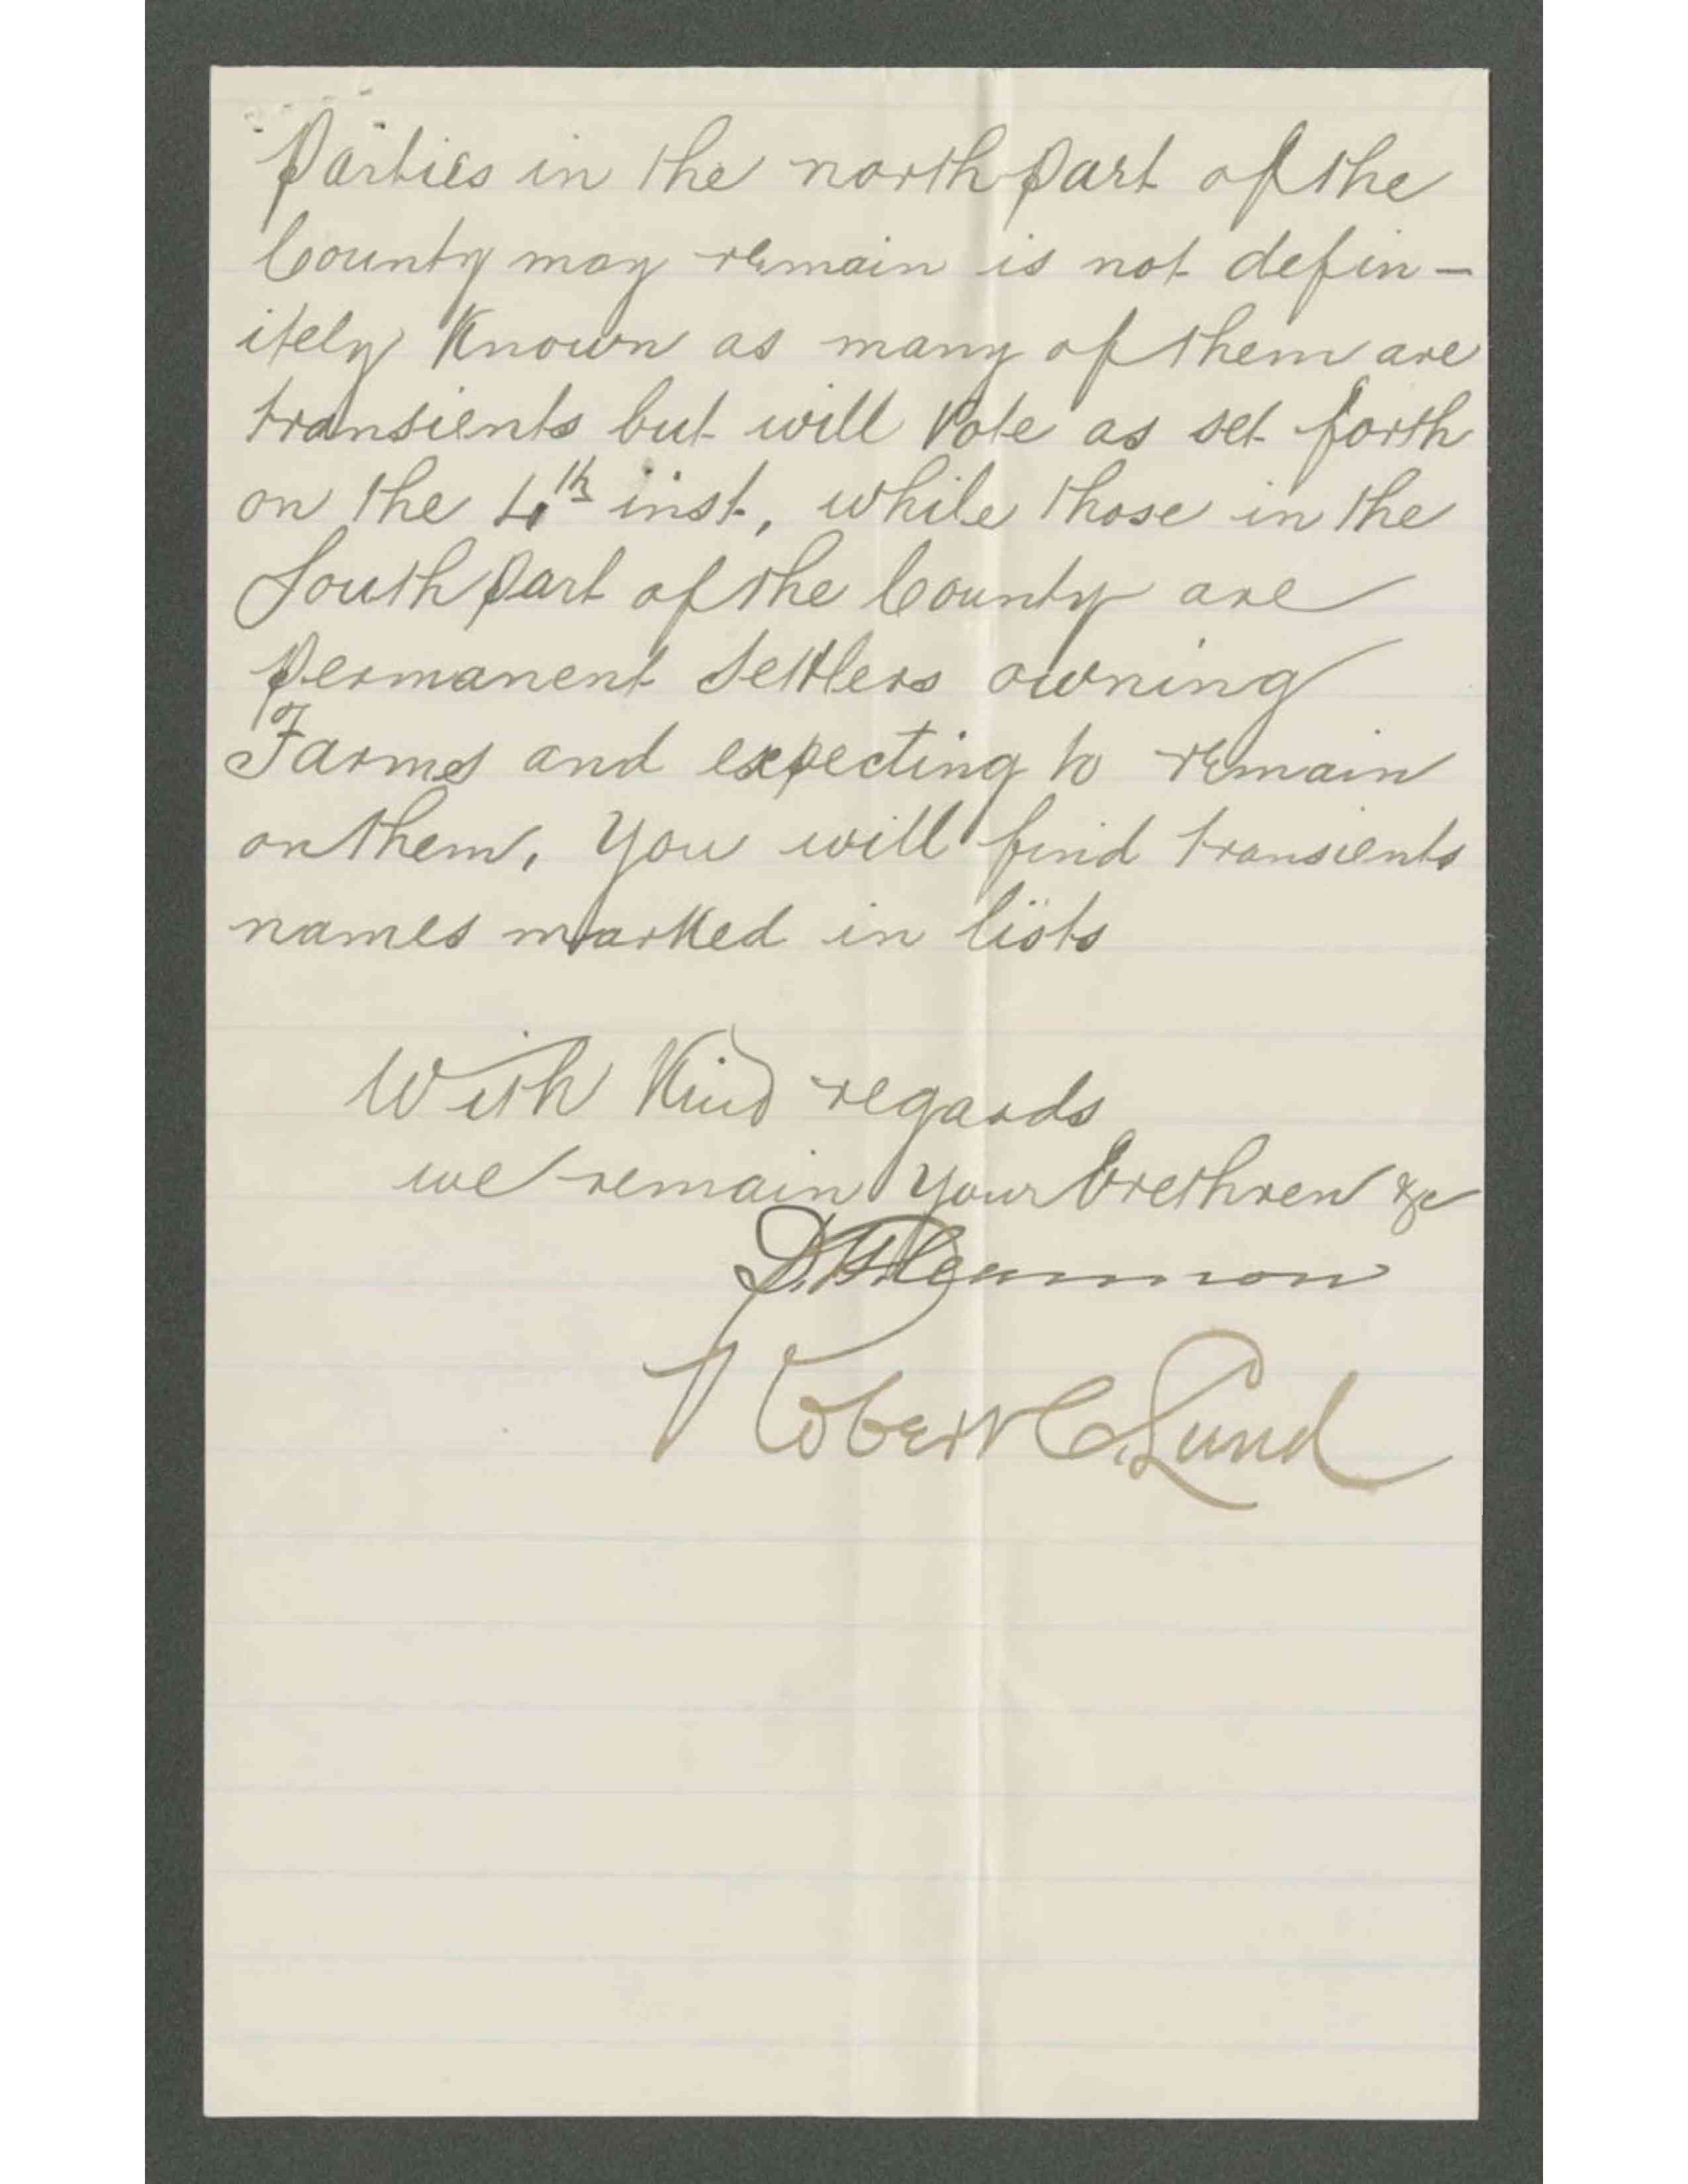 Parties in the north part of the
County may remain is not defin-
itely Known as many of them are
transients but will Vote as set forth
on the 4th inst., while those in the
South part of the County are
permanent Settlers owning
Farms and expecting to remain
on them. You will find transients
names marked in lists
With Kind regards
we remain your brethren &c
Cannon
Robert C. Lund